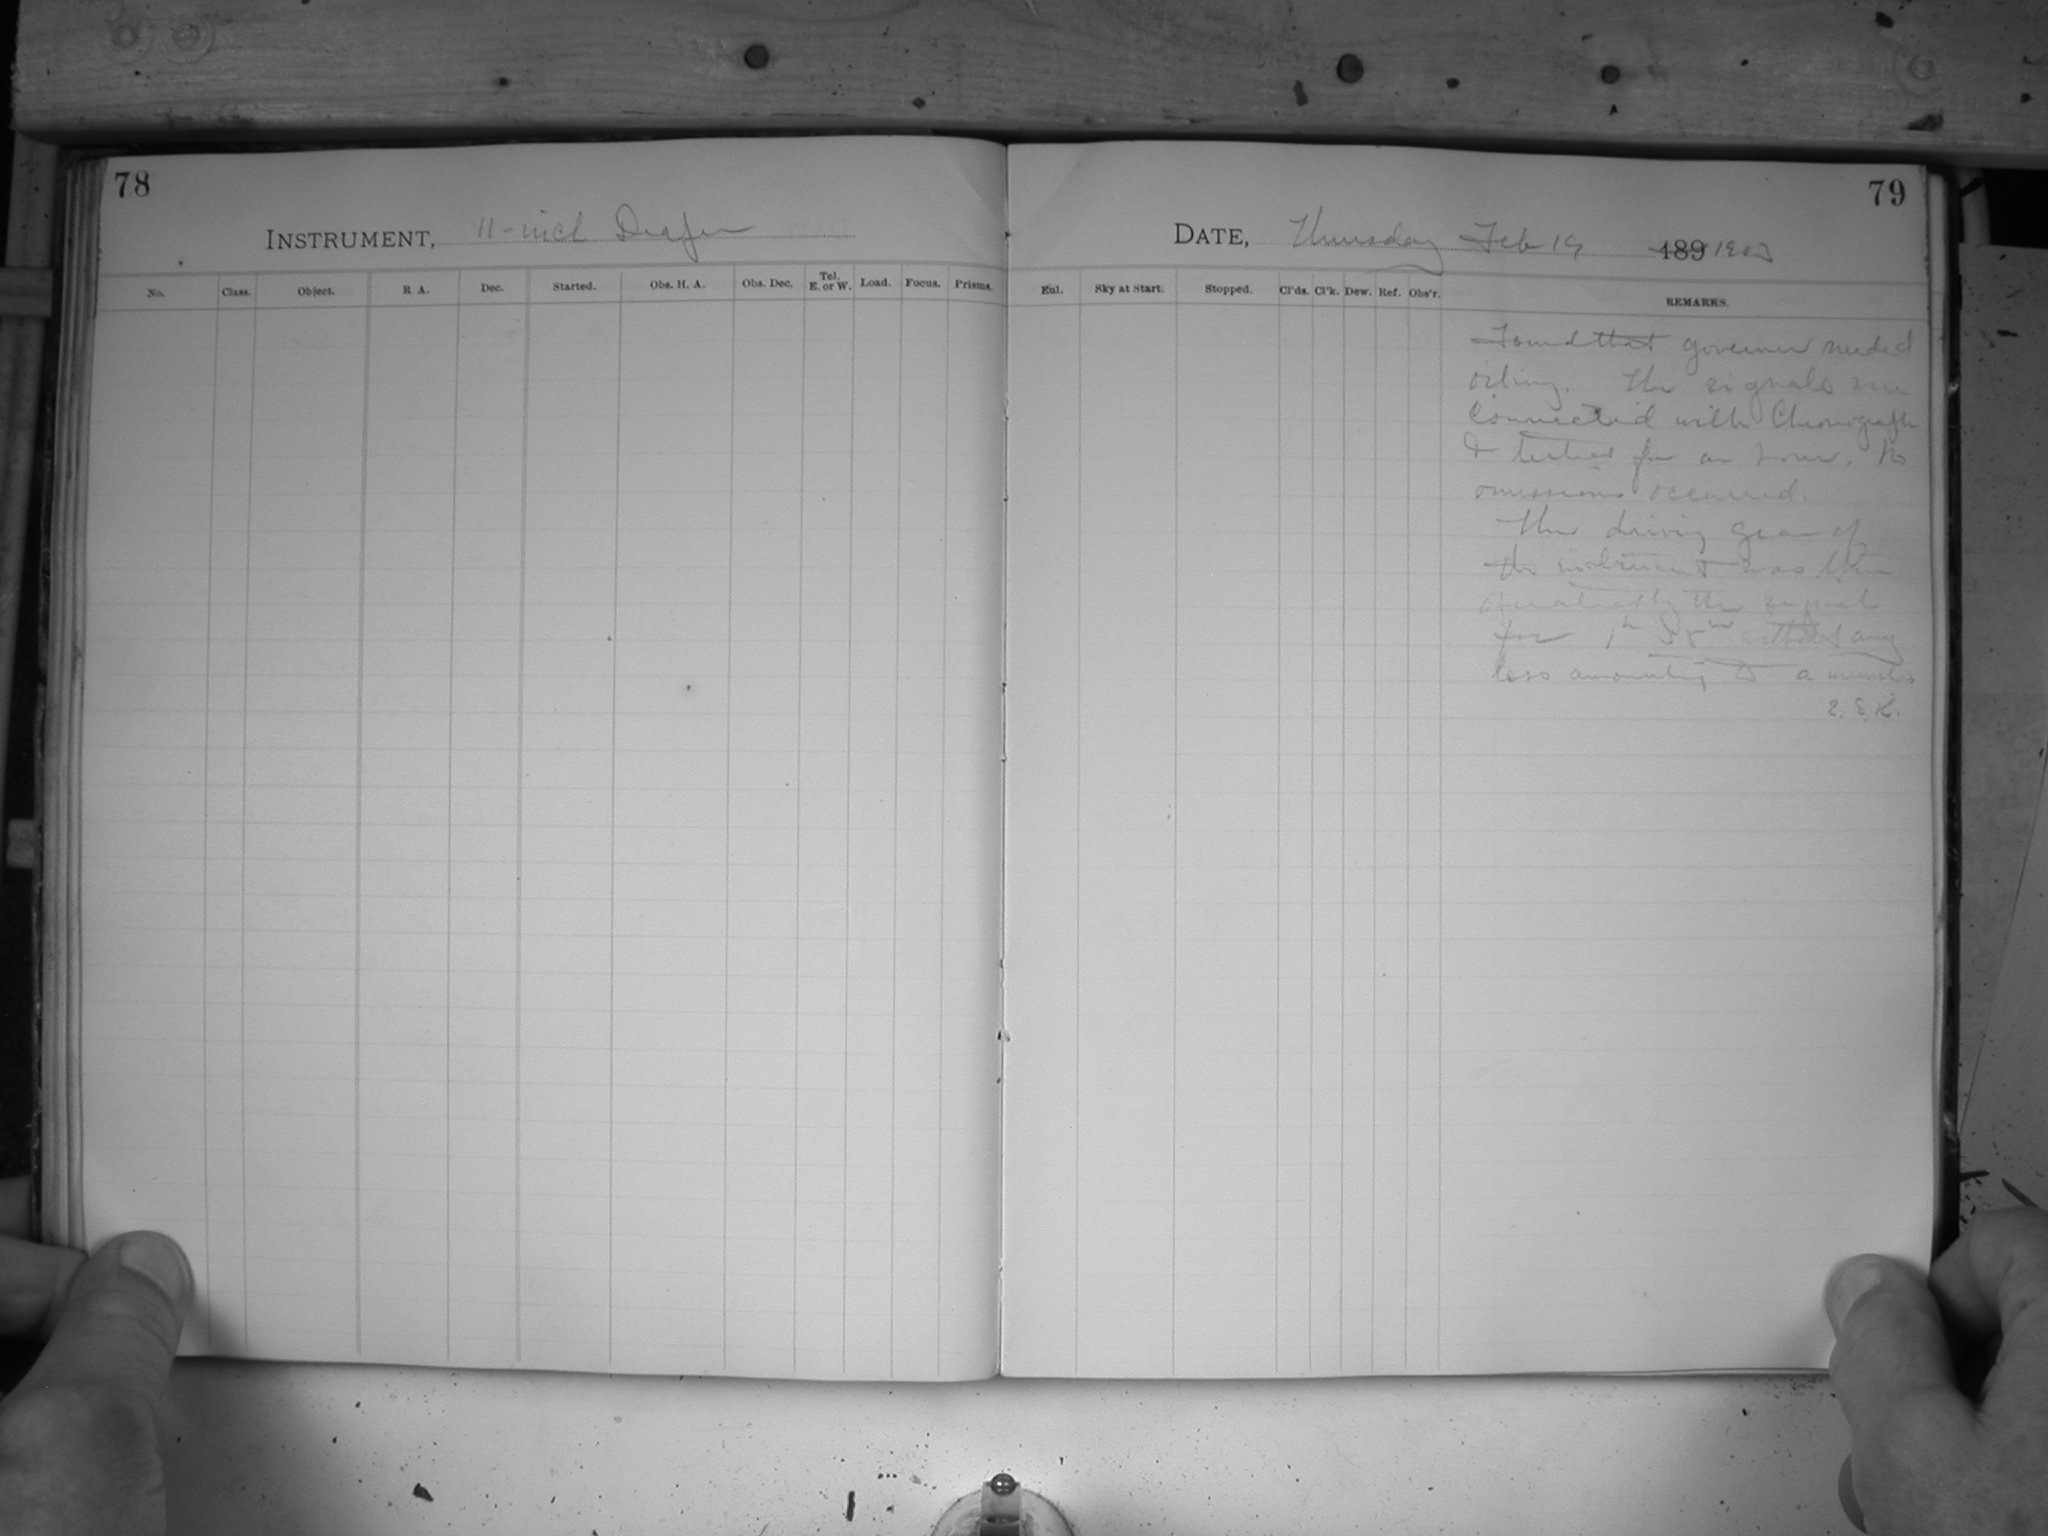 78
INSTRUMENT, 11-inch Draper
No. Class. Object. R. A. Dec. Started. Obs. H. A. Obs. Dec. Tel. E. or W. Load. Focus. Prisms.
79
DATE, Thursday Feb 19 189 1903
Enl. Sky at Start. Stopped. Cl'ds. Cl'k. Dew. Ref. Obs'r. REMARKS.
Found that governor needed
oiling. The signals were
connected with Chronograph
& tested for an hour. No
omissions occurred.
The driving gear of
the instrument was then
operated by the signal
for 1h m without any
loss amounting to a
E. S. K.